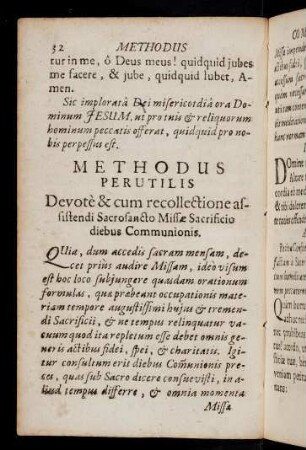 32 METHODUS
tur in me, ô Deus meus! quidquid jubes
me facere, & jube, quidquid lubet, A-
men.
Sic imploratâ Dei misericordiâ ora Do-
minum JESUM, ut pro tuis & reliquorum
hominum peccatis offerat, quidquid pro no-
bis perpessus est.
METHODUS
PERUTILIS
Devotè & cum recollectione as-
sistendi Sacrosancto Missæ Sacrificio
diebus Communionis.
QUia, dum accedis sacram mensam, de-
cet priùs audire Missam, ideo visum
est hoc loco subjungere quasdam orationum
formulas, quæ præbeant occupationis mate-
riam tempore augustissimi hujus & tremen-
di Sacrificii, & ne tempus relinquatur va-
cuum quod ita repletum esse debet omnis ge-
neris actibus fidei, spei, & charitatis. Igi-
tur consultum erit diebus Comunionis pre-
ces, quas sub Sacro dicere consuevisti, in a-
liud tempus differre, & omnia momenta
Missæ